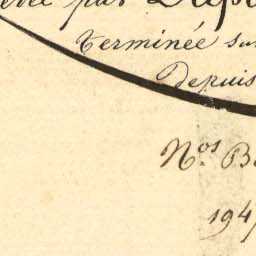 par
terminée su
depuis
N.os B
194